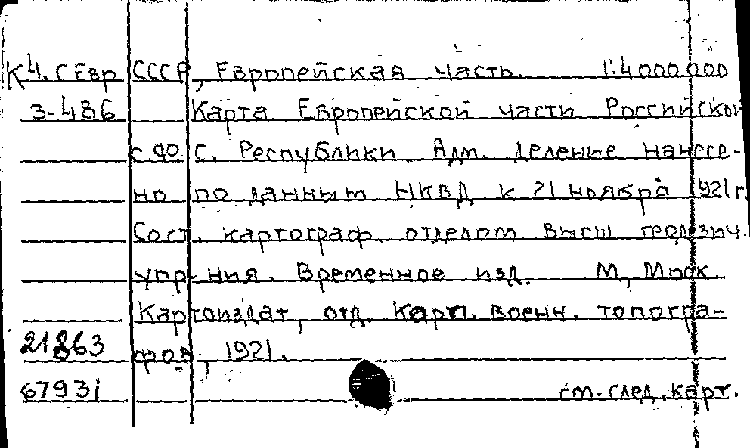 К4. СЕвр СССР, Европейская часть. 1:4000000
3-486 Карта Европейской части Российской
С.ФО.С. Республики. Адм. деление нанесе-
но по данным НКВД к 21 ноября 1921 г.
Сост. картограф. отделом Высш. геодезич.
упр-ния. Временное изд. М, Моск.
Картоиздат, отд. Корп. военн. топогра-
21263 фов, 1921.
67931 см. след. карт.